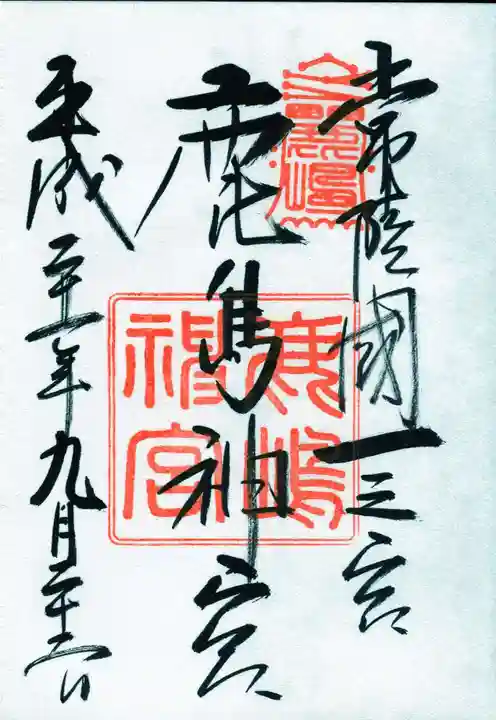 常陸國一之宮
鹿島神宮
平成二十一年九月二十二日
鹿嶋
鹿嶋神宮